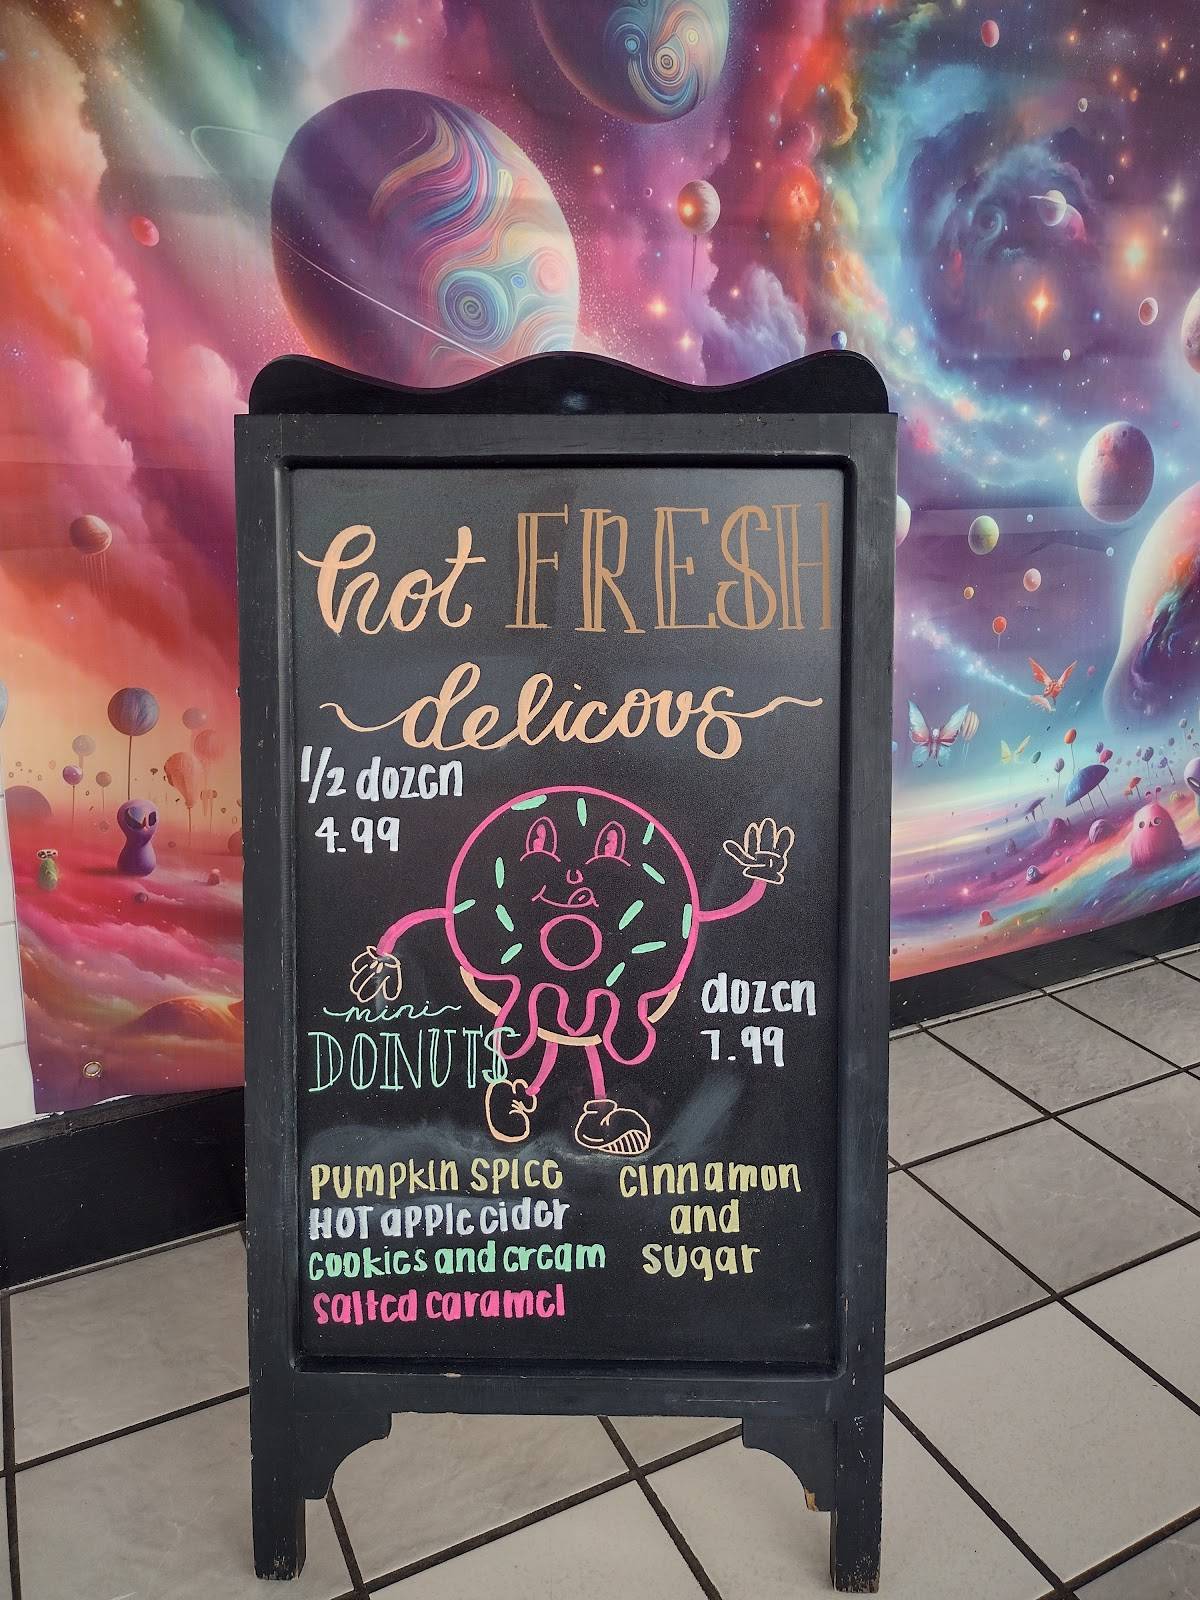 hot FRESH
delicous
1/2 dozen
4.99
dozen
7.99
mini
DONUTS
PUMPKIN SPICE
HOT apple cider
cookies and cream
salted caramel
cinnamon
and
sugar